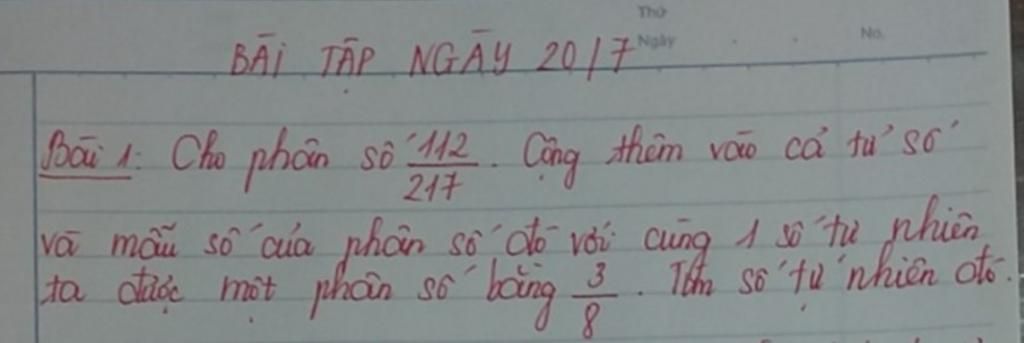 Thứ
Ngày No.
BÀI TẬP NGÀY 20/7
Bài 1: Cho phân số 112/217. Cộng thêm vào cả tử số
và mẫu số của phân số đó với cùng 1 số tự nhiên
ta được một phân số bằng 3/8. Tìm số tự nhiên đó.